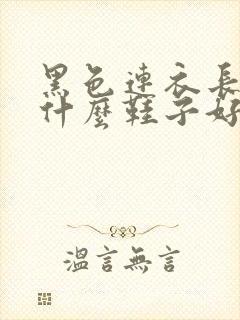 黑色連衣長
什麼鞋子好
溫言無言